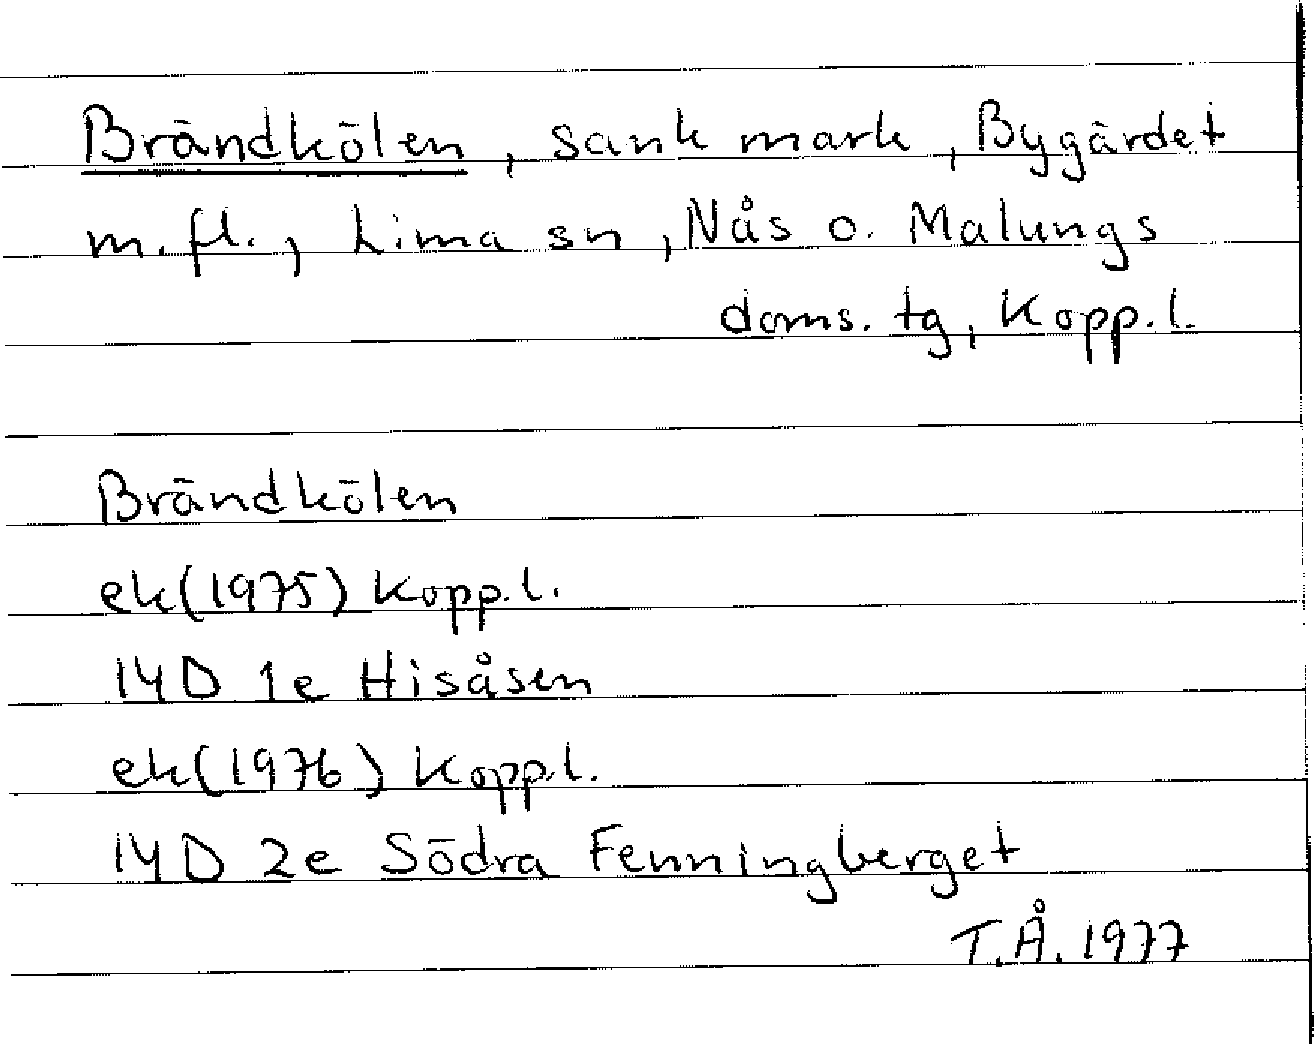 Brändkölen, sank mark, Bygärdet
m.fl., Lima sn, Nås o. Malungs
doms. tg, Kopp.l.
Brändkölen
ek(1975) Kopp.l.
14D 1e Hisåsen
ek(1976) Kopp.l.
14D 2e Södra Fenningberget
T.Å. 1977